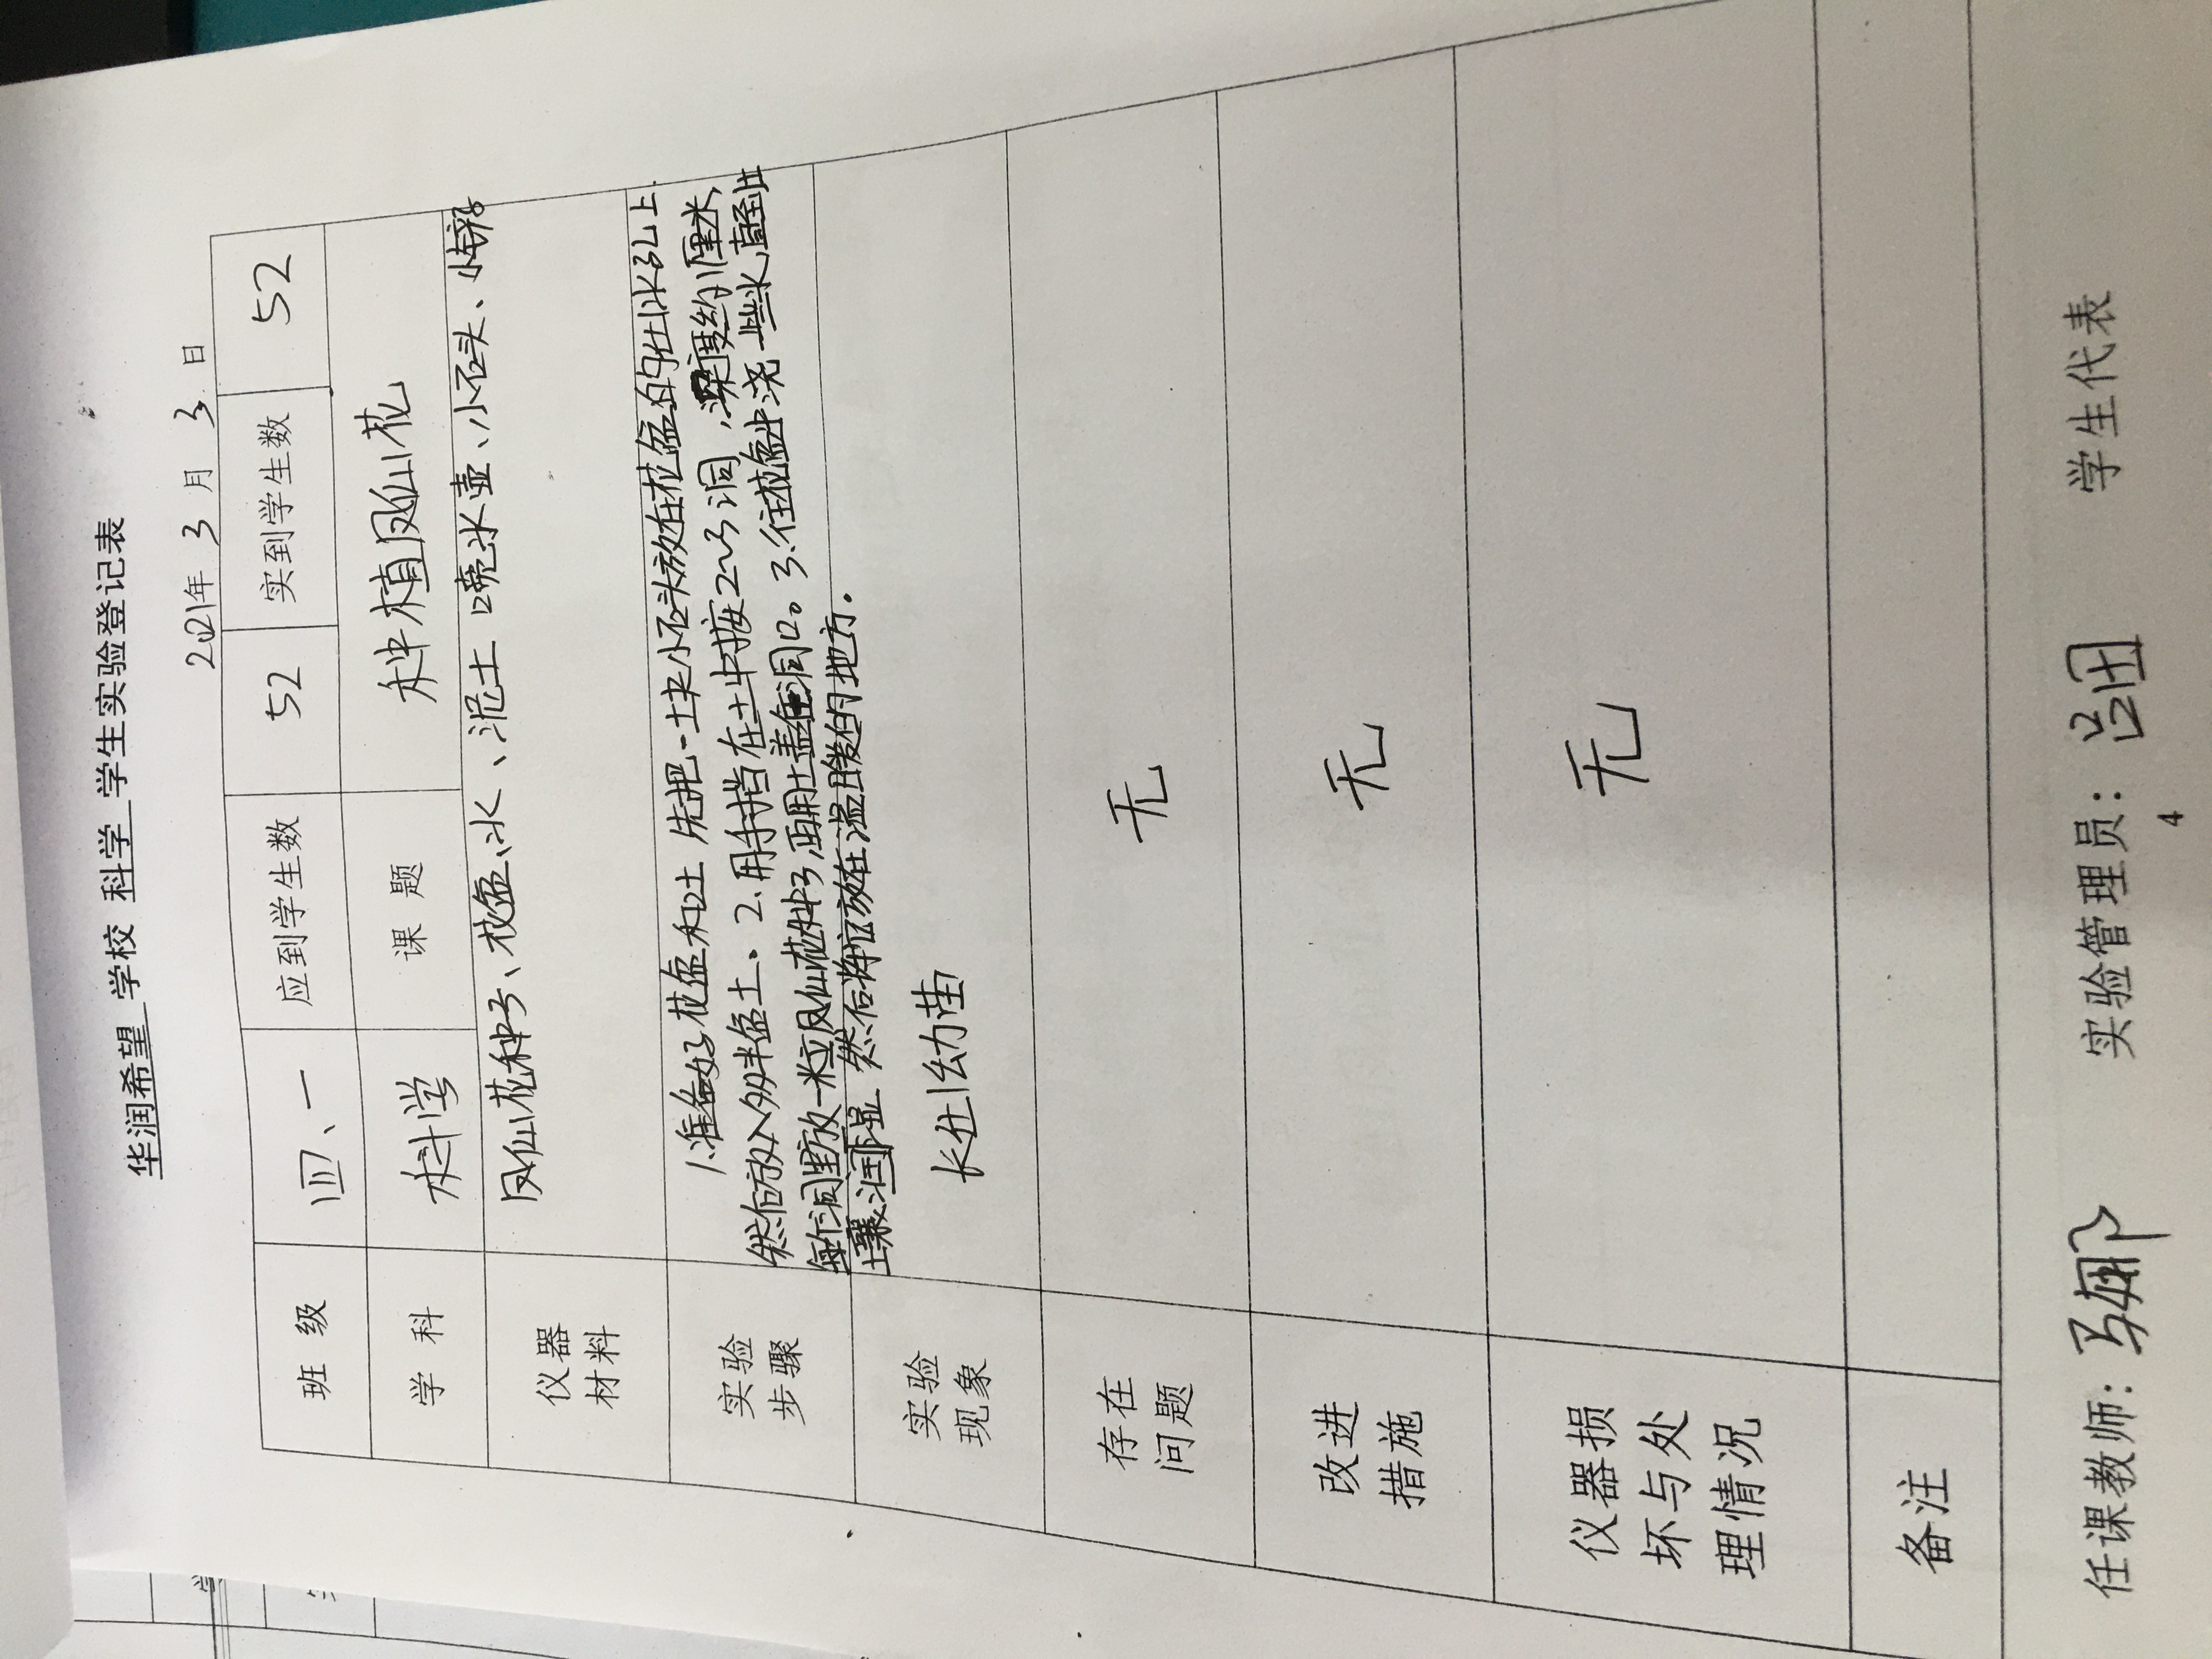 华润希望 学校 科学 学生实验登记表
2021年 3 月 3 日
班 级 四、一 应到学生数 52 实到学生数 52
学 科 科学 课 题 种植凤仙花
仪器材料 凤仙花种子、花盆、水、泥土 喷水壶、小石头、
实验步骤 1.准备好花盆和土 先把一块小石头放在花盆的出水孔上
然后放入多半盆土。2.用手指在土中按2~3洞,深度约1厘米,
每个洞里放一粒凤仙花种子,再用土盖住洞口。3.往花盆中浇一些水,直到土
壤湿润 然后将它放在温暖的地方.
实验现象 长出幼苗
存在问题 无
改进措施 无
仪器损坏与处理情况 无
备注
任课教师: 实验管理员: 学生代表
4